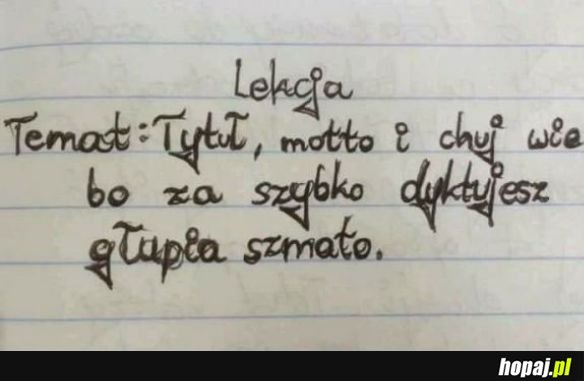 Lekcja
Temat: Tytuł, motto i chuj wie
bo za szybko dyktujesz
głupia szmato.
hopaj.pl